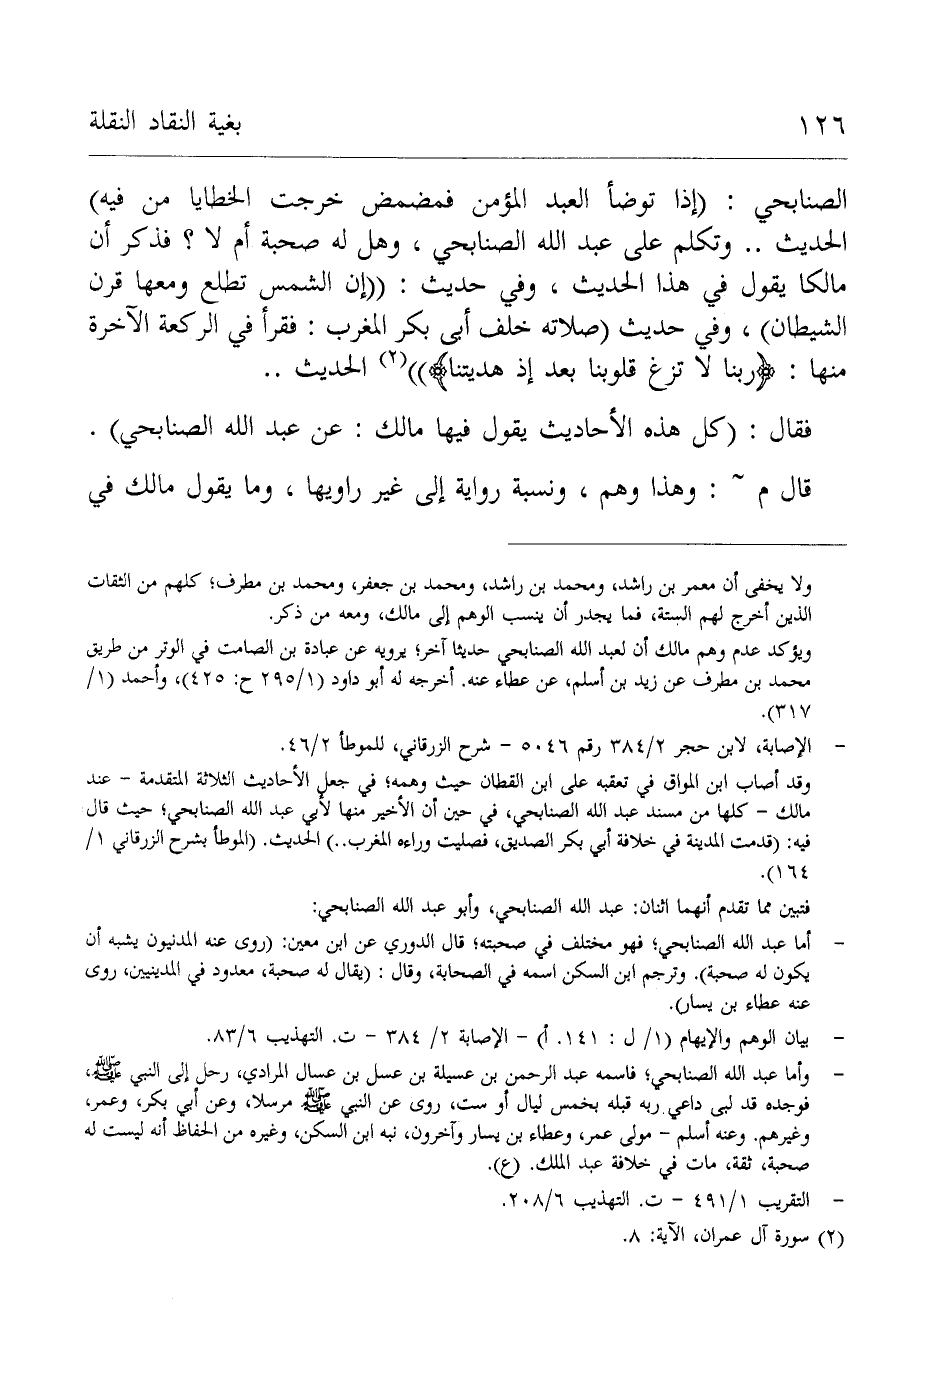 ١٢٦ بغية النقاد النقلة
الصنابحي : (إذا توضأ العبد المؤمن فمضمض خرجت الخطايا من فيه)
الحديث .. وتكلم على عبد الله الصنابحي ، وهل له صحبة أم لا ؟ فذكر أن
مالكا يقول في هذا الحديث ، وفي حديث : ((إن الشمس تطلع ومعها قرن
الشيطان) ، وفي حديث (صلاته خلف أبى بكر المغرب : فقرأ في الركعة الآخرة
منها : ﴿ربنا لا تزغ قلوبنا بعد إذ هديتنا﴾))(٢) الحديث ..
فقال : (كل هذه الأحاديث يقول فيها مالك : عن عبد الله الصنابحي) .
قال م ~ : وهذا وهم ، ونسبة رواية إلى غير راويها ، وما يقول مالك في
ولا يخفى أن معمر بن راشد، ومحمد بن راشد، ومحمد بن جعفر، ومحمد بن مطرف؛ كلهم من الثقات
الذين أخرج لهم الستة، فما يجدر أن ينسب الوهم إلى مالك، ومعه من ذكر.
ويؤكد عدم وهم مالك أن لعبد الله الصنابحي حديثا آخر؛ يرويه عن عبادة بن الصامت في الوتر من طريق
محمد بن مطرف عن زيد بن أسلم، عن عطاء عنه. أخرجه له أبو داود (٢٩٥/١ ح: ٤٢٥)، وأحمد (١/
٣١٧).
- الإصابة، لابن حجر ٣٨٤/٢ رقم ٥٠٤٦ - شرح الزرقاني، للموطأ ٤٦/٢.
وقد أصاب ابن المواق في تعقبه على ابن القطان حيث وهمه؛ في جعل الأحاديث الثلاثة المتقدمة - عند
مالك - كلها من مسند عبد الله الصنابحي، في حين أن الأخير منها لأبي عبد الله الصنابحي؛ حيث قال
فيه: (قدمت المدينة في خلافة أبي بكر الصديق، فصليت وراءه المغرب..) الحديث. (الموطأ بشرح الزرقاني ١/
١٦٤).
فتبين مما تقدم أنهما اثنان: عبد الله الصنابحي، وأبو عبد الله الصنابحي:
- أما عبد الله الصنابحي؛ فهو مختلف في صحبته؛ قال الدوري عن ابن معين: (روى عنه المدنيون يشبه أن
يكون له صحبة). وترجم ابن السكن اسمه في الصحابة، وقال : (يقال له صحبة، معدود في المدينيين، روى
عنه عطاء بن يسار).
- بيان الوهم والإيهام (١/ ل : ١٤١. أ) - الإصابة ٢/ ٣٨٤ - ت. التهذيب ٨٣/٦.
- وأما عبد الله الصنابحي؛ فاسمه عبد الرحمن بن عسيلة بن عسل بن عسال المرادي، رحل إلى النبي ﷺ،
فوجده قد لبى داعي ربه قبله بخمس ليال أو ست، روى عن النبي ﷺ مرسلا، وعن أبي بكر، وعمر،
وغيرهم. وعنه أسلم - مولى عمر، وعطاء بن يسار وآخرون، نبه ابن السكن، وغيره من الحفاظ أنه ليست له
صحبة، ثقة، مات في خلافة عبد الملك. (ع).
- التقريب ٤٩١/١ - ت. التهذيب ٢٠٨/٦.
(٢) سورة آل عمران، الآية: ٨.